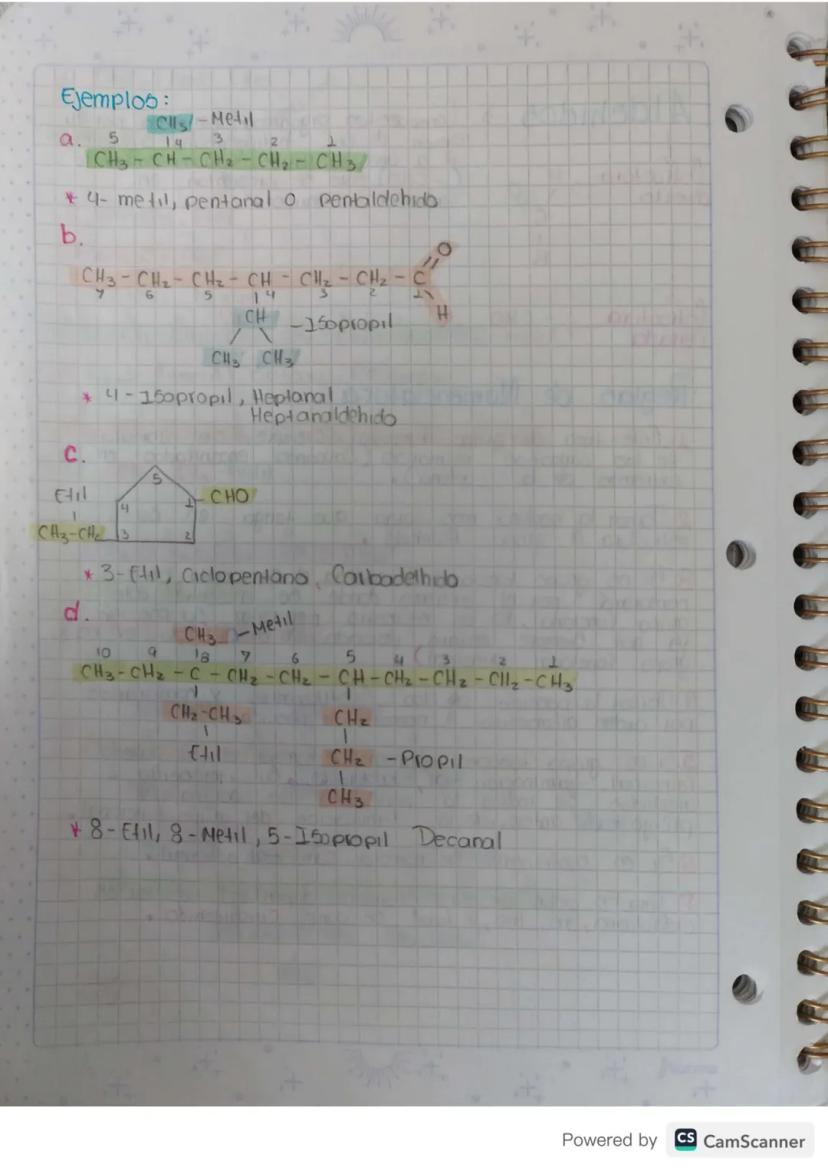 Ejemplos:
CH3 - Metil
a. 5 14 3 2 1
CH3 - CH - CH2 - CH2 - CH3
* 4- metil, pentanal o pentaldehido
b.
O
CH3 - CH2 - CH2 - CH - CH2 - CH2 - C
7 6 5 14 3 2 1
H
CH - Isopropil
CH3 CH3
* 4 - Isopropil, Heptanal
Heptanaldehido
c.
5
Etil 4 1 CHO
CH3-CH2 3 2
* 3-Etil, Ciclopentano, Carbadelhido
d.
CH3 - Metil
10 9 18 7 6 5 4 3 2 1
CH3 - CH2 - C - CH2 - CH2 - CH - CH2 - CH2 - CH2 - CH3
CH2-CH3 CH2
Etil CH2 - Propil
CH3
* 8-Etil, 8-Metil, 5-Isopropil Decanal
Powered by CS CamScanner